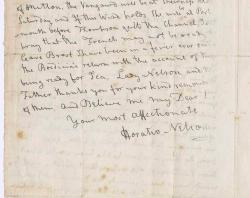 of Mutton, the Vanguard will be at
Saturday and if the Wind holds the
month before Thompson gets the Channel
pray that the French may not be ready
leave Brest I have been in a fever ever
the return with the account of
being ready for Sea, Lady Nelson and
Father thanks you for your kind
of them, and Believe me my Dear
Your most affectionate
Horatio Nelson